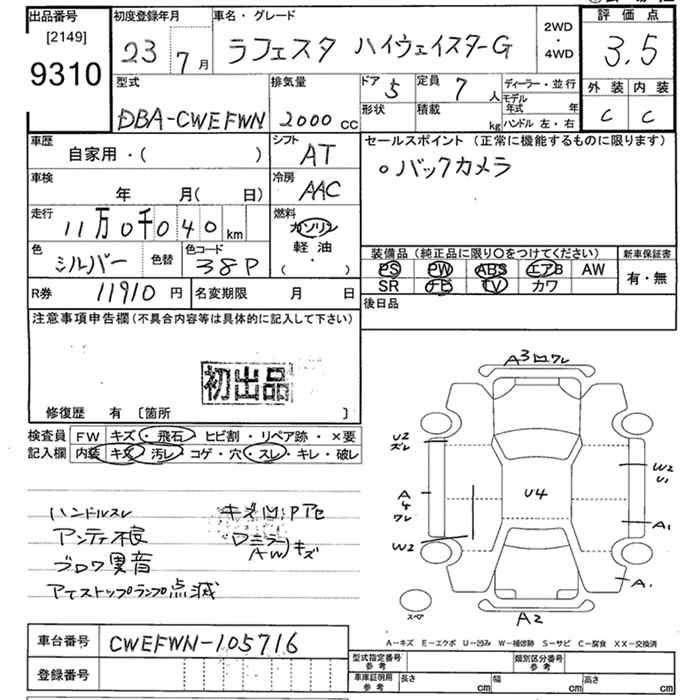 出品番号
[2149]
9310
初度登録年月
23 7月
車名・グレード
ラフェスタ ハイウェイスターG
2WD
・
4WD
評価点
3.5
外装 内装
C C
型式
DBA-CWEFWN
排気量
2000 cc
ドア 5
定員 7 人
形状
積載 kg
ディーラー・並行
モデル年式 年
ハンドル 左・右
車歴
自家用・( )
シフト
AT
セールスポイント(正常に機能するものに限ります)
○バックカメラ
車検
年 月( 日)
冷房
AAC
走行
11万0千040km
燃料
ガソリン
軽油
( ・ )
色
シルバー
色替
色コード
38P
装備品(純正品に限り○をつけてください)
新車保証書
PS PW ABS エアB AW
有・無
SR ナビ TV カワ
R券 11910 円
名変期限 月 日
後日品
注意事項申告欄(不具合内容等は具体的に記入して下さい)
初出品
修復歴 有 [箇所 ]
検査員
記入欄
FW キズ・飛石・ヒビ割・リペア跡・×要
内装 キズ・汚レ・コゲ・穴・スレ・キレ・破レ
ハンドルスレ
アンテナ根
ブロワ異音
アイストップランプ点滅
キズ凹:Pアセ
Dミラー キズ
AW
A3凹ワレ
U2
ズレ
A
4
ワレ
W2
U4
W2
U1
A1
A1
スペア
A2
A-キズ E-エクボ U-凹み W-補修跡 S-サビ C-腐食 XX-交換済
車台番号
CWEFWN-105716
登録番号
型式指定番号
参考
類別区分番号
参考
車庫証明用
参考
長さ cm 幅 cm 高さ cm